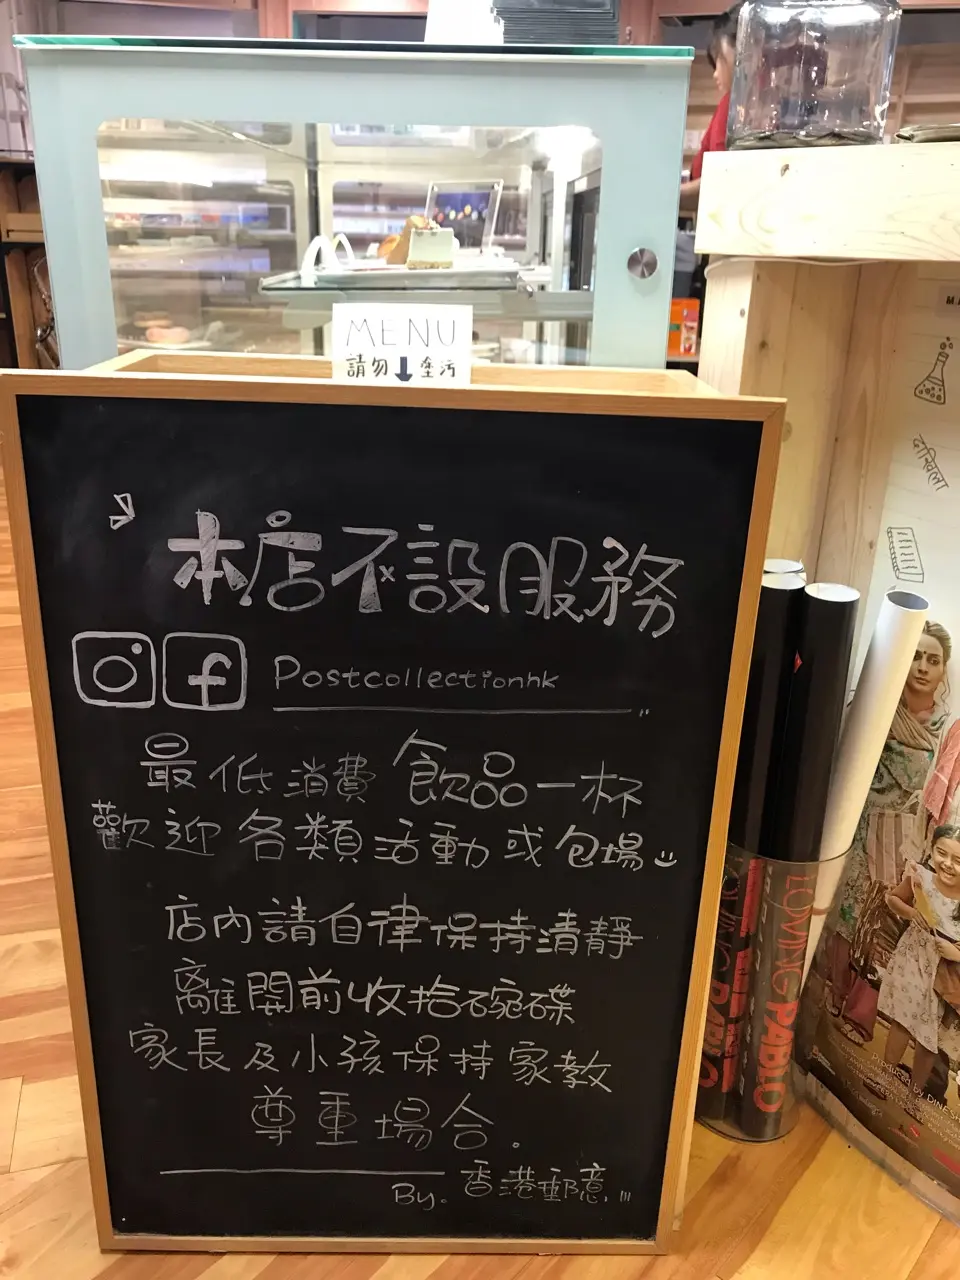 MENU
請勿 塗污
本店不設服務
Postcollectionhk
最低消費 飲品一杯
歡迎 各類活動或包場
店內請自律保持清靜
離開前收拾碗碟
家長及小孩保持家教
尊重場合.
By. 香港郵意
LOVING PABLO
Produced by DINESH